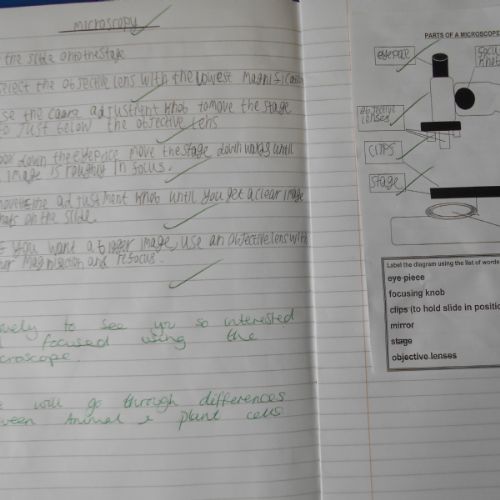 microscopy
the slide onto the stage
select the objective lens with the lowest magnific
use the coarse adjustment knob to move the stage
to just below the objective lens
down the eyepiece move the stage downwards until
image is roughly in focus.
move the adjustment knob until you get a clear image
on the slide.
you want a bigger image, use an objective lens with
magnification and refocus.
to see you so interested
focused using the
will go through differences
Animal & plant cells
PARTS OF A MICROSCOPE
eyepiece
focus
knob
objective
lenses
CLIPS
Stage
Label the diagram using the list of words
eye piece
focusing knob
clips (to hold slide in positio
mirror
stage
objective lenses